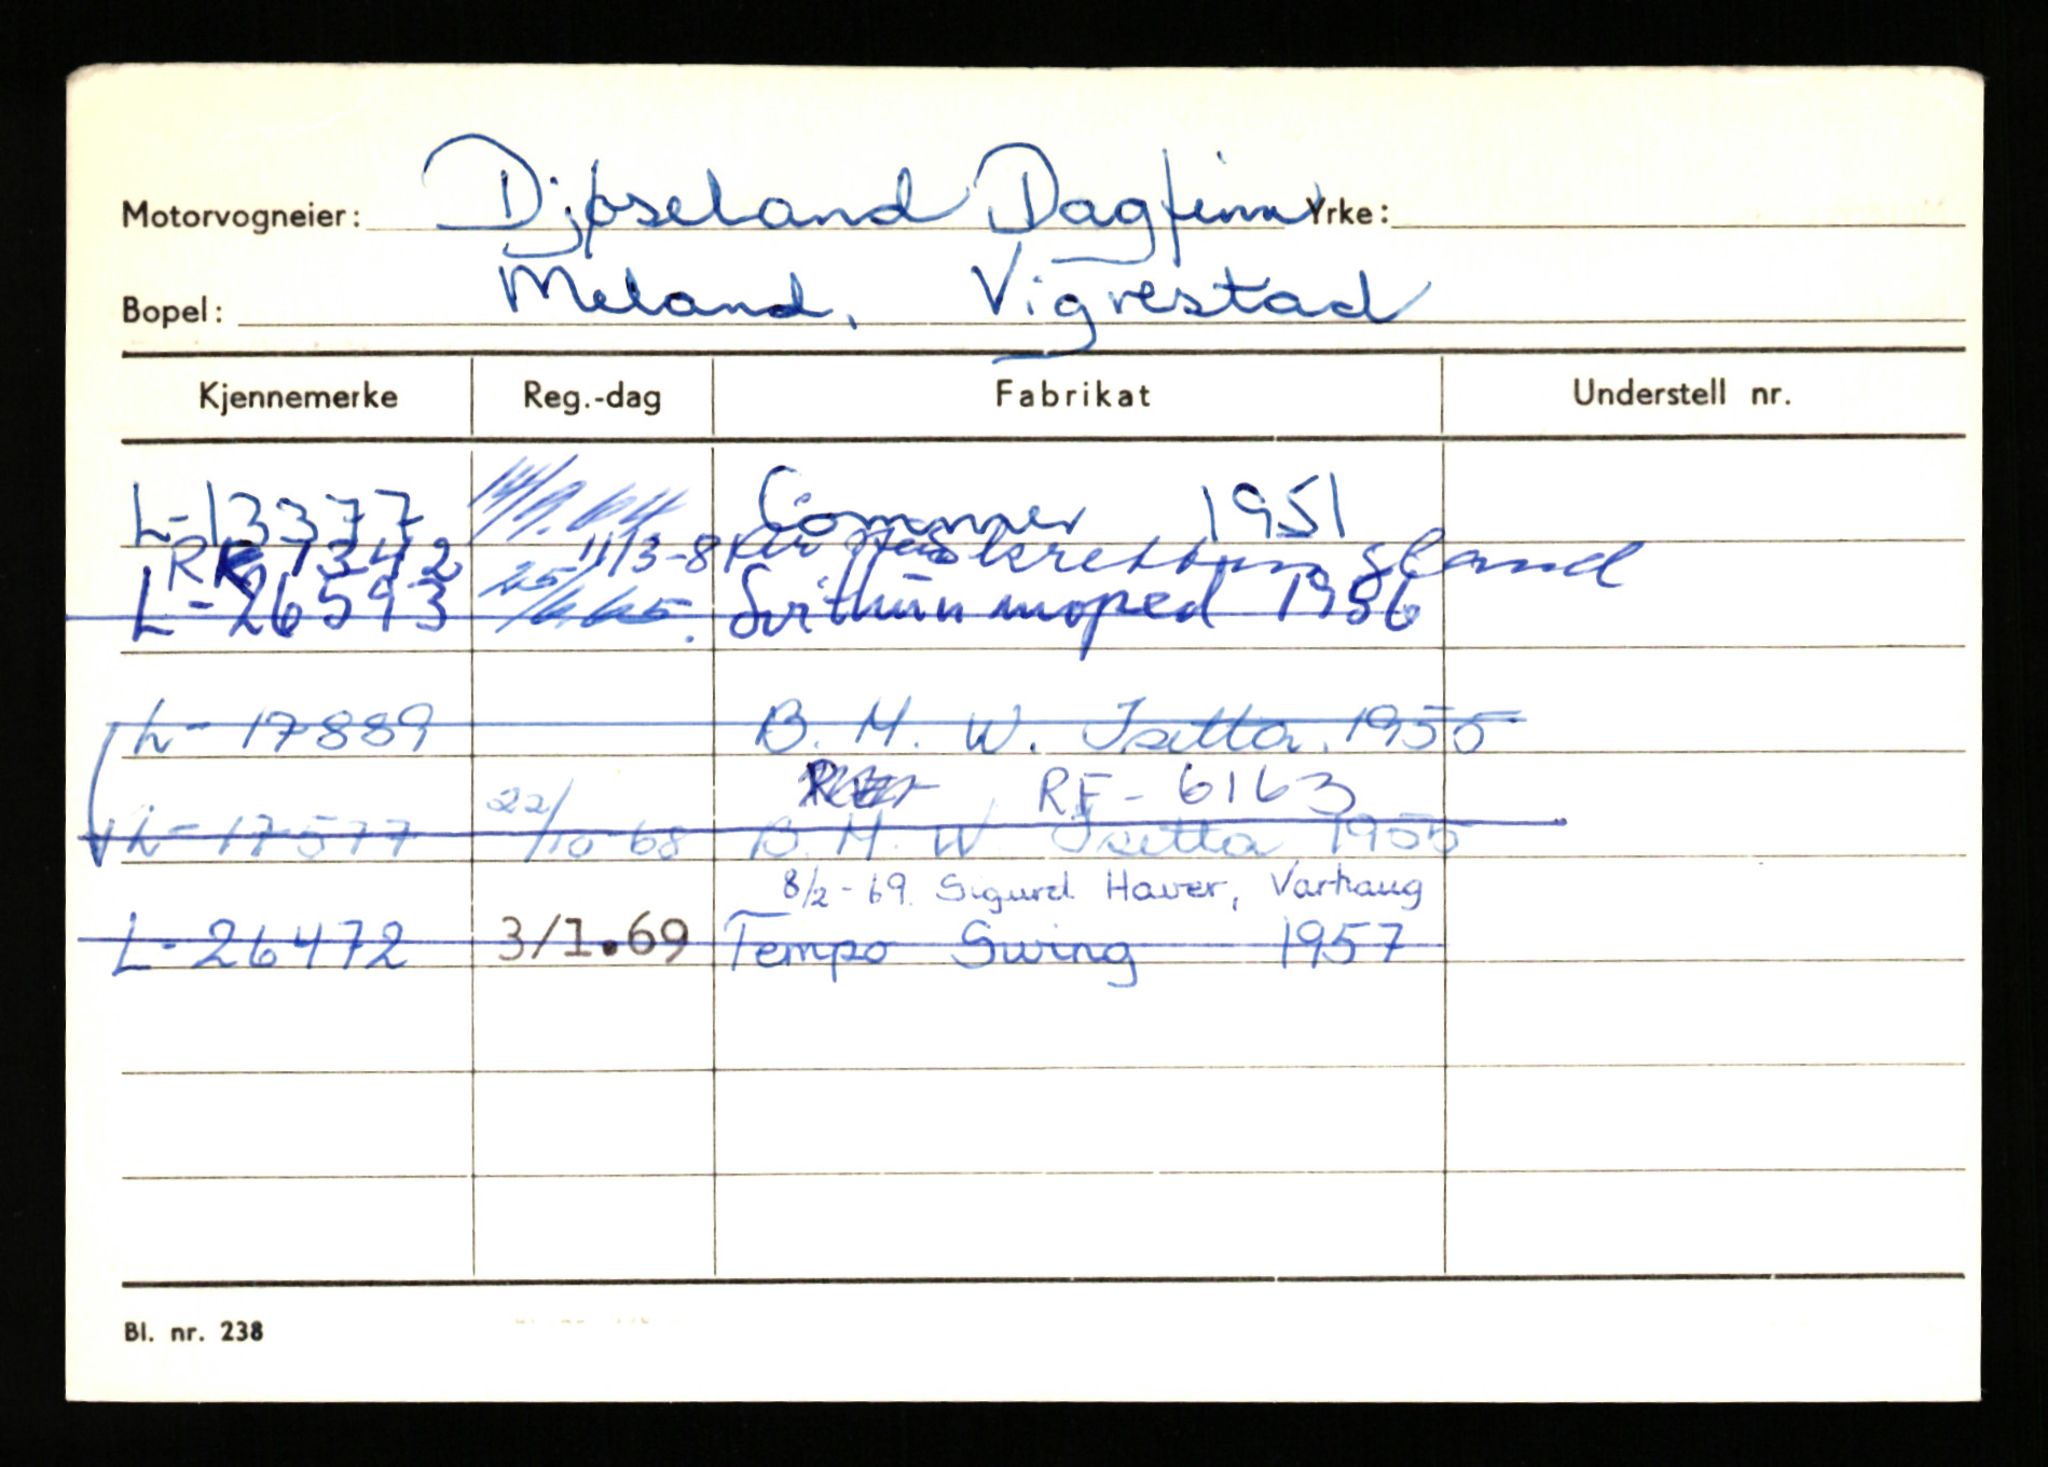 Motorvogneier: Djøseland Dagfinn Yrke:
Bopel: Meland, Vigrestad
Kjennemerke Reg.-dag Fabrikat Understell nr.
L-13377 14/9.64 Commer 1951
RK 7342 11/3-8
L-26593 25/6.65. Svithun moped 1956
L-17889 B. M. W. Isetta. 1955
RF-6163
L-17577 22/10-68 B. M. W Isetta 1955
8/2-69. Sigurd Haver, Varhaug
L-26472 3/1.69 Tempo Swing 1957
Bl. nr. 238